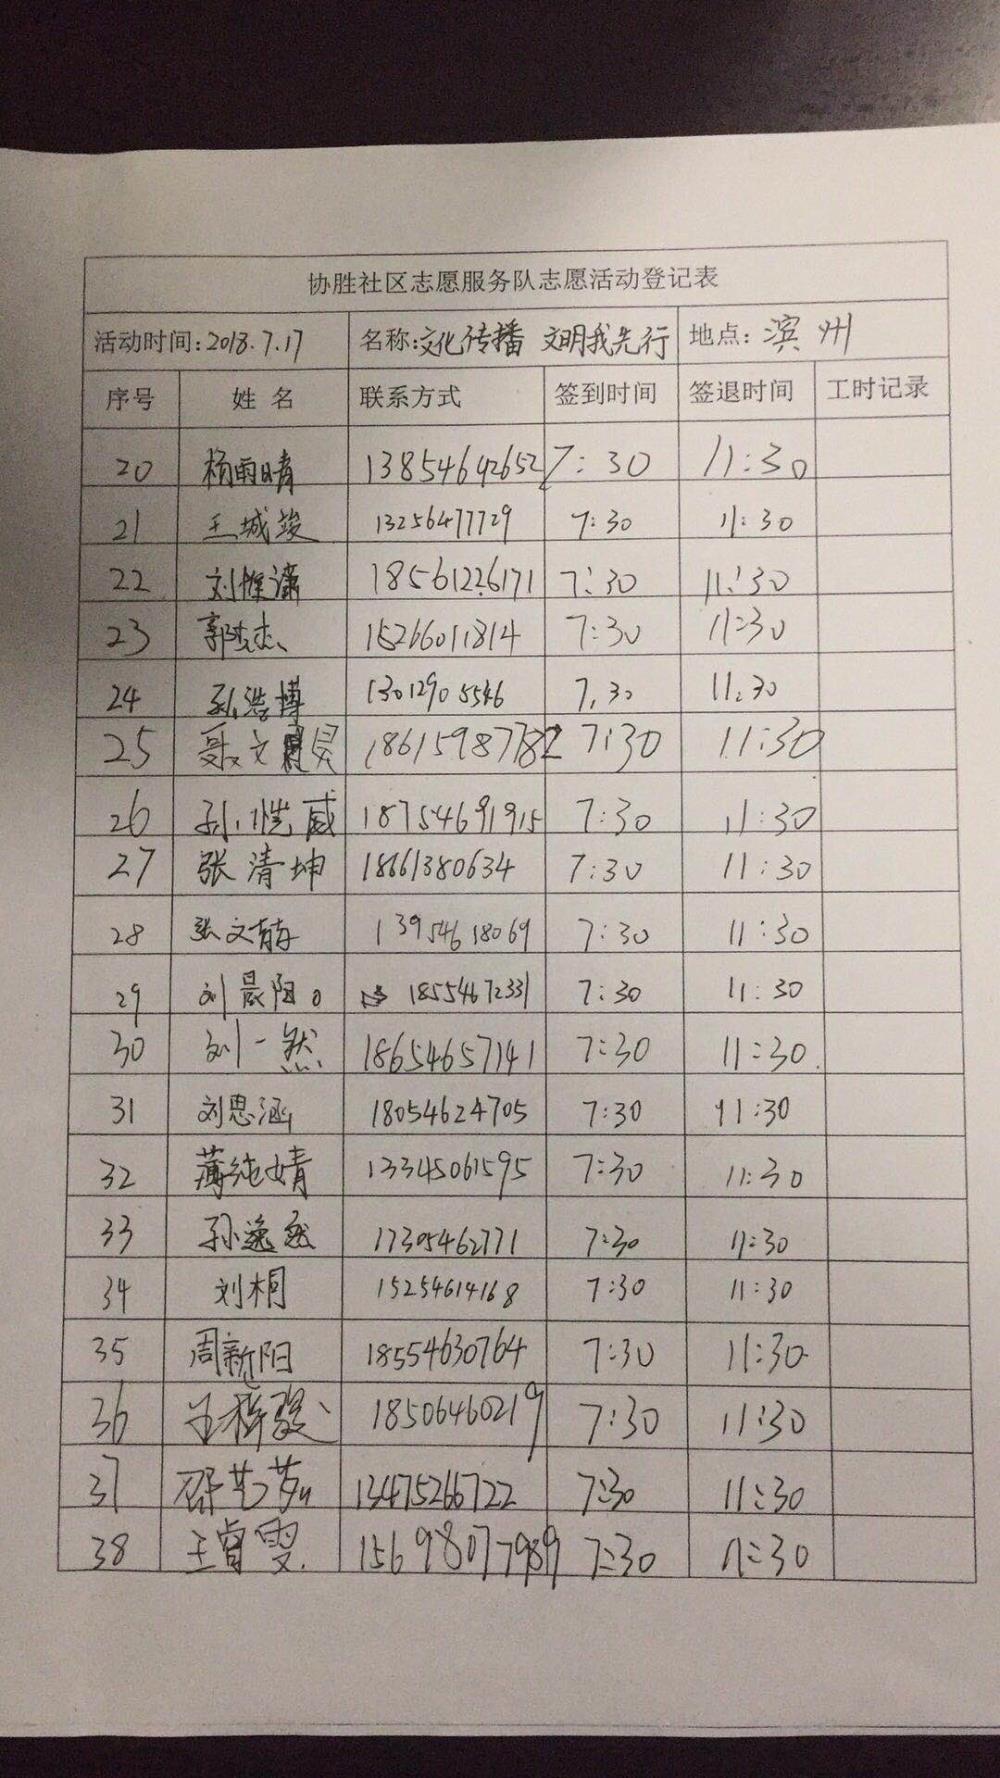 协胜社区志愿服务队志愿活动登记表
活动时间:2018.7.17 名称:文化传播 文明我先行 地点: 滨州
序号 姓名 联系方式 签到时间 签退时间 工时记录
20 杨雨晴 13854642652 7:30 11:30
21 王城竣 13256477729 7:30 11:30
22 刘惟潇 18561226171 7:30 11:30
23 15266011814 7:30 11:30
24 孙浩博 13012905546 7,30 11:30
25 聂文昊 18615987782 7:30 11:30
26 孙恺威 18754691915 7:30 11:30
27 张清坤 18661380634 7:30 11:30
28 张文 13954618069 7:30 11:30
29 刘晨阳 18554672331 7:30 11:30
30 刘一然 18654657141 7:30 11:30
31 刘思涵 18054624705 7:30 11:30
32 薄纯婧 13345061595 7:30 11:30
33 孙逸 17305462771 7:30 11:30
34 刘桐 15254614168 7:30 11:30
35 周新阳 18554630764 7:30 11:30
36 王梓骏 18506460219 7:30 11:30
37 邵艺梦 13475266722 7:30 11:30
38 王睿雯 15698077989 7:30 11:30